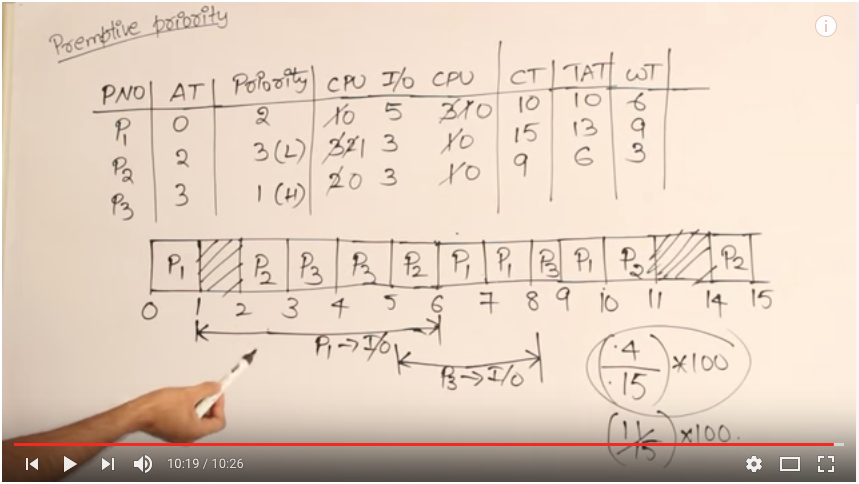 Premptive priority
PNO AT Priority CPU I/O CPU CT TAT WT
P1 0 2 10 5 310 10 10 6
P2 2 3(L) 321 3 10 15 13 9
P3 3 1(H) 20 3 10 9 6 3
P1 P2 P3 P3 P2 P1 P1 P3 P1 P2 P2
0 1 2 3 4 5 6 7 8 9 10 11 14 15
P1→I/O
P3→I/O
(4/15)*100
(11/15)*100.
10:19 / 10:26